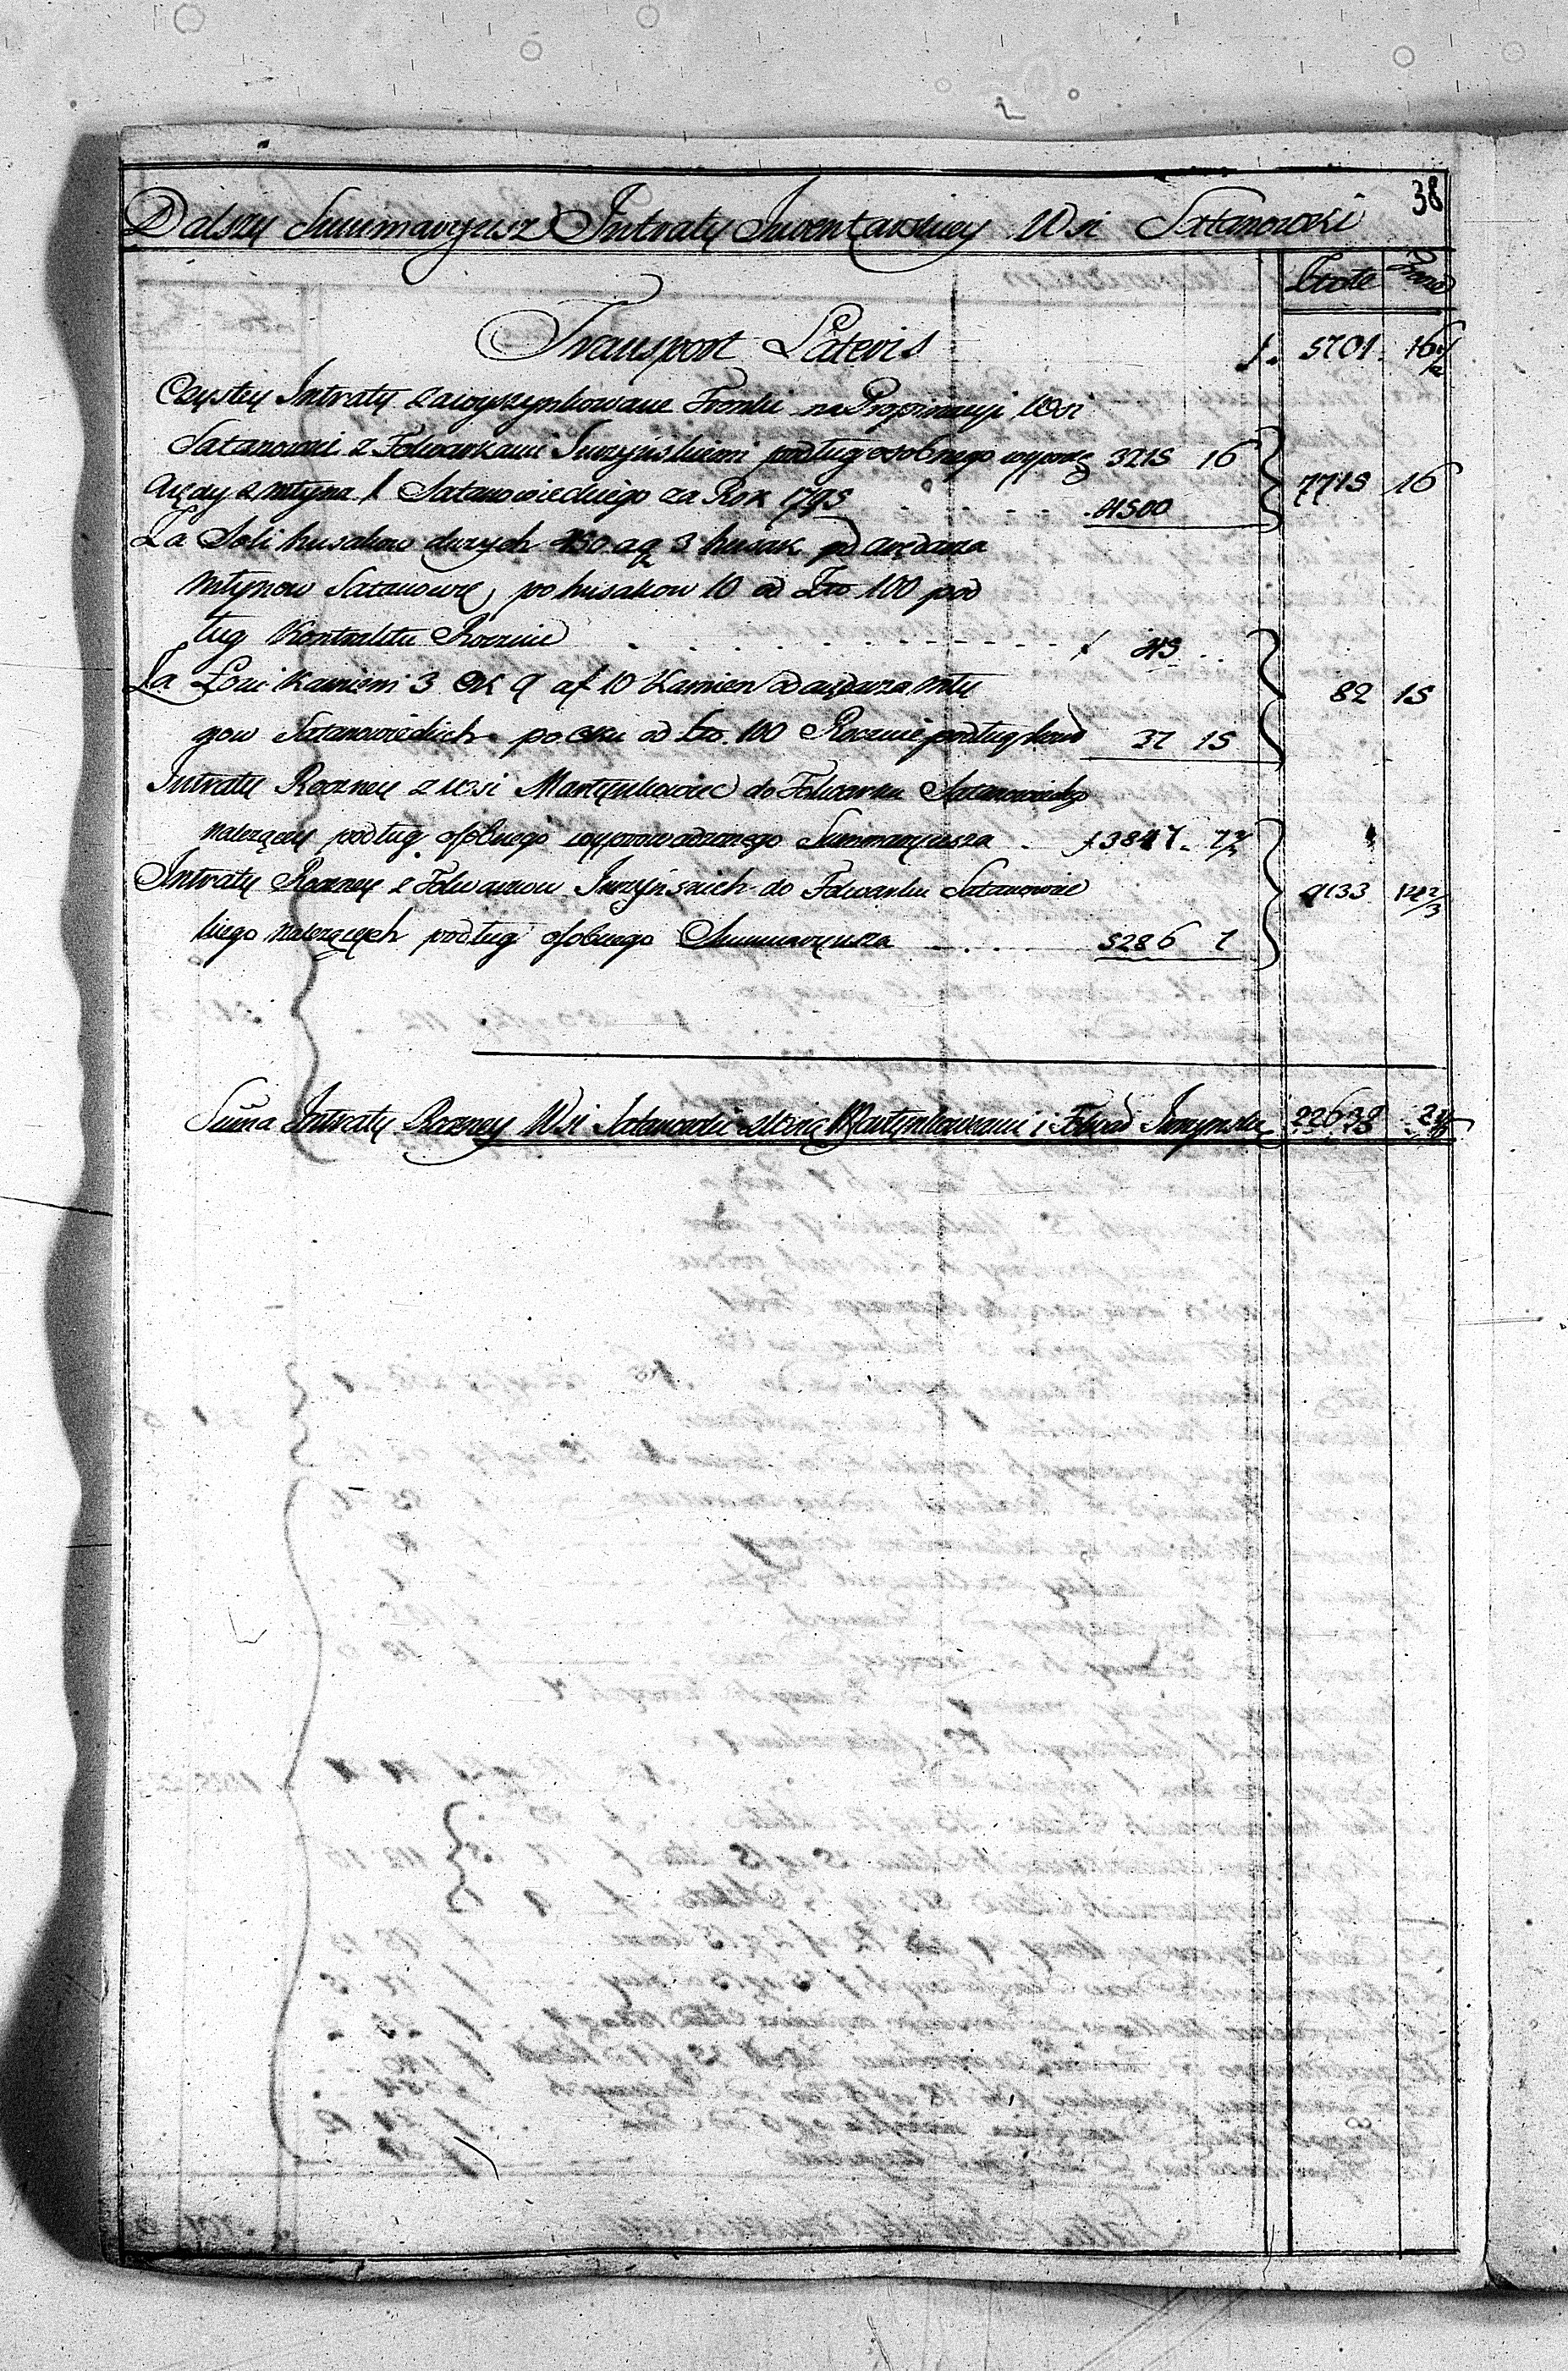 38
Dalszy Summaryusz Intraty Inwentarskiey Wsi Satanowki
Złote Grosze
Transport Lateris f. 5701. 16
Czystey Intraty za wyszynkowane Trunki na Propinacyi Wsi
Satanowki z Folwarkami Jurzyńskiemi podług osobnego 3215 16
Arędy z Młyna 1 Satanowieckiego za Rok 1795 4500 7715 16
Za Soli husakow dużych 450 a g 3 husak od arędarza
Młynow Satanowie, po husakow 10 od Zło 100 pod
ług Kontraktu Rocznie f 45
Za Łoiu Kamieni 3 Ok 9 a f 10 Kamien od arędarza Mły
now Satanowieckich po oku od Zło. 100 Rocznie podług 37 15 82 15
Intraty Roczney z Wsi Martynkowiec do Folwarku Satanowieckgo
należącey podług osobnego wyprowadzonego Summaryusza f 3847. 7
Intraty Roczney z Folwarkow Jurzyńskich do Folwarku Satanowiec
kiego należących podług osobnego Summaryusza 5286 7 9133 14 2/3
Suma Intraty Roczney Wsi Satanowki z Martynkowcami i 22633 2